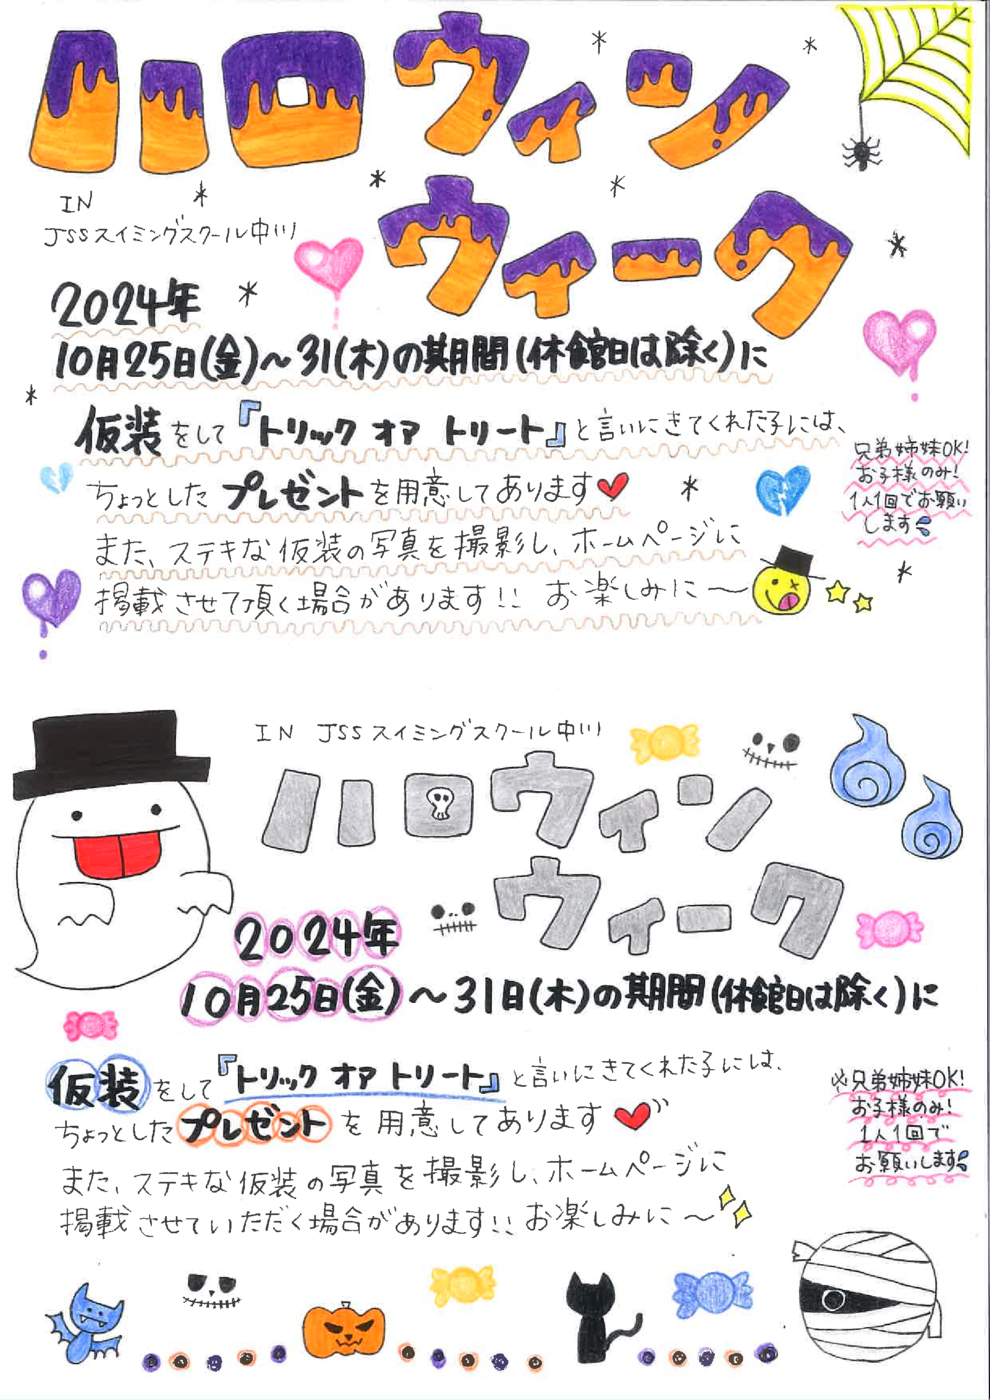 ハロウィン
ウィーク
IN
JSSスイミングスクール中川
2024年
10月25日(金)～31(木)の期間(休館日は除く)に
仮装をして『トリック オア トリート』と言いにきてくれた子には、
ちょっとしたプレゼントを用意してあります
また、ステキな仮装の写真を撮影し、ホームページに
掲載させて頂く場合があります!! お楽しみに～
兄弟姉妹OK!
お子様のみ!
1人1回でお願い
します
IN JSSスイミングスクール中川
ハロウィン
ウィーク
2024年
10月25日(金)～31日(木)の期間(休館日は除く)に
仮装をして『トリック オア トリート』と言いにきてくれた子には、
ちょっとしたプレゼントを用意してあります
また、ステキな仮装の写真を撮影し、ホームページに
掲載させていただく場合があります!! お楽しみに～
※兄弟姉妹OK!
お子様のみ!
1人1回で
お願いします